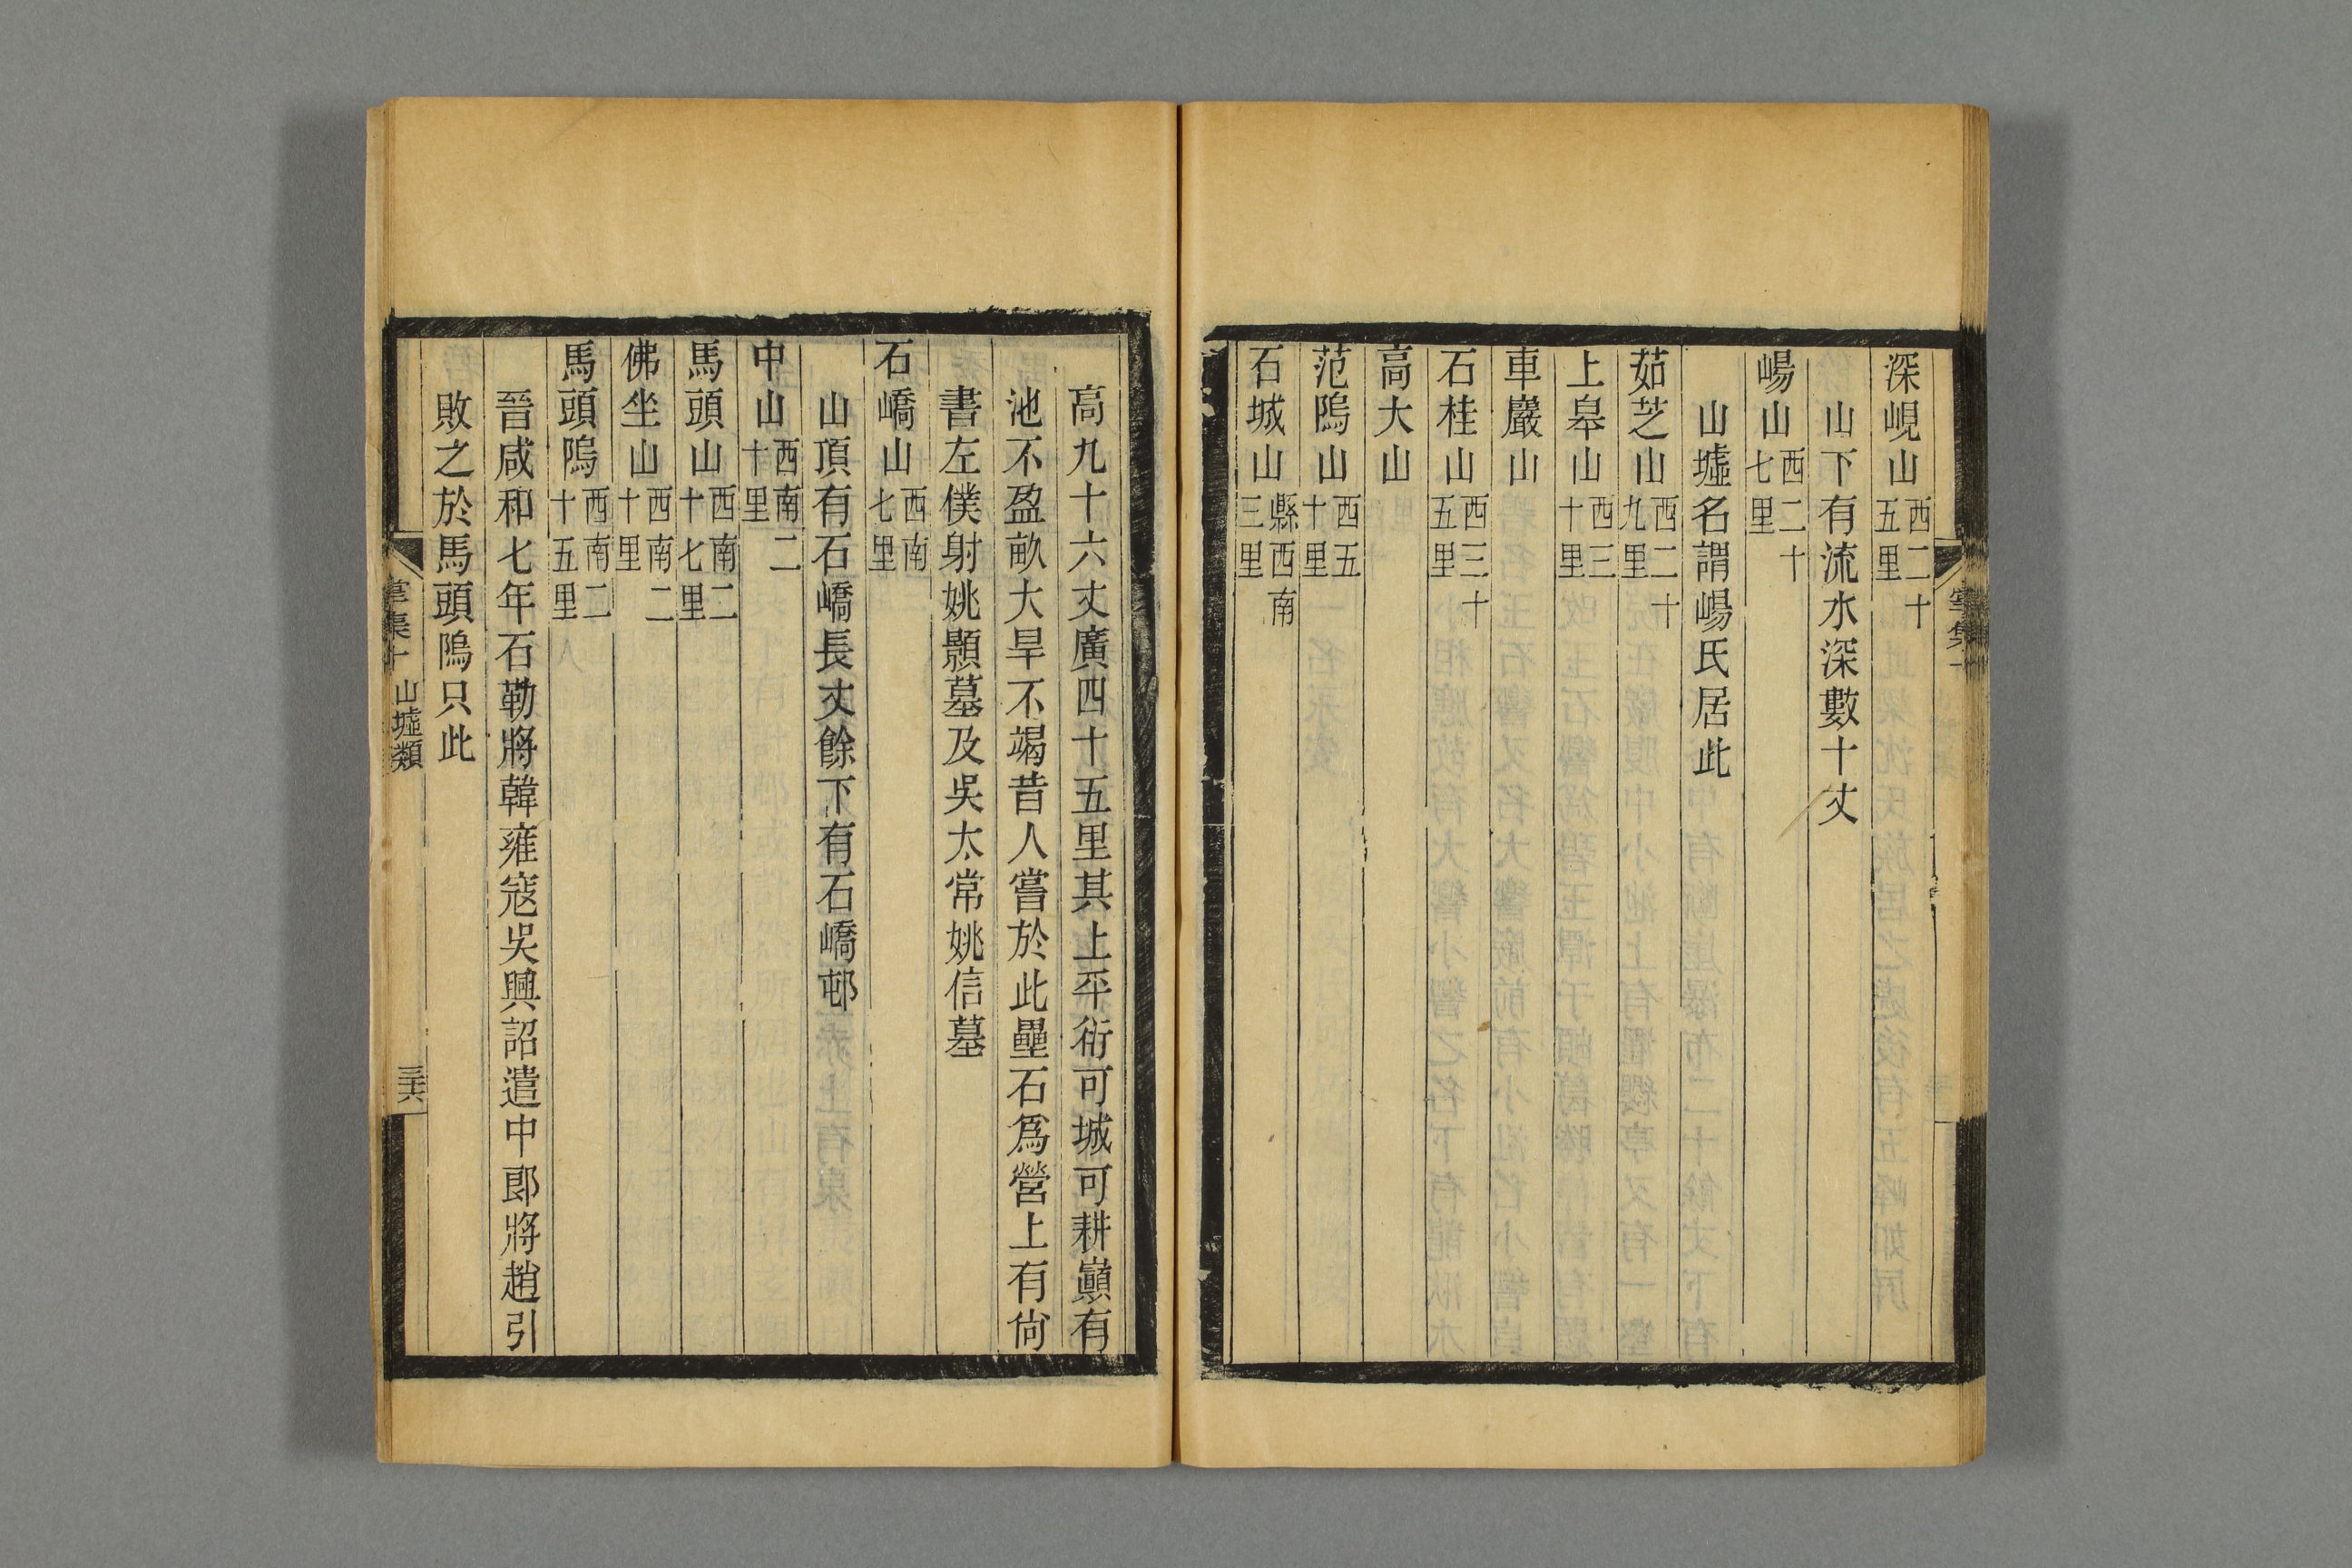 深峴山西二十五里
山下有流水深數十丈
崵山西二十七里
山墟名謂崵氏居此
茹芝山西二十九里
上皋山西三十里
車巖山
石桂山西三十五里
高大山
范隖山西五十里
石城山縣西南三里
高九十六丈廣四十五里其上平衍可城可耕巔有
池不盈畝大旱不竭昔人嘗於此壘石爲營上有尙
書左僕射姚顯墓及吳太常姚信墓
石嶠山西南七里
山頂有石嶠長丈餘下有石嶠邨
中山西南二十里
馬頭山西南二十七里
佛坐山西南二十里
馬頭隖西南二十五里
晉咸和七年石勒將韓雍寇吳興詔遣中郎將趙引
敗之於馬頭隖只此
掌集十 山墟類 三六